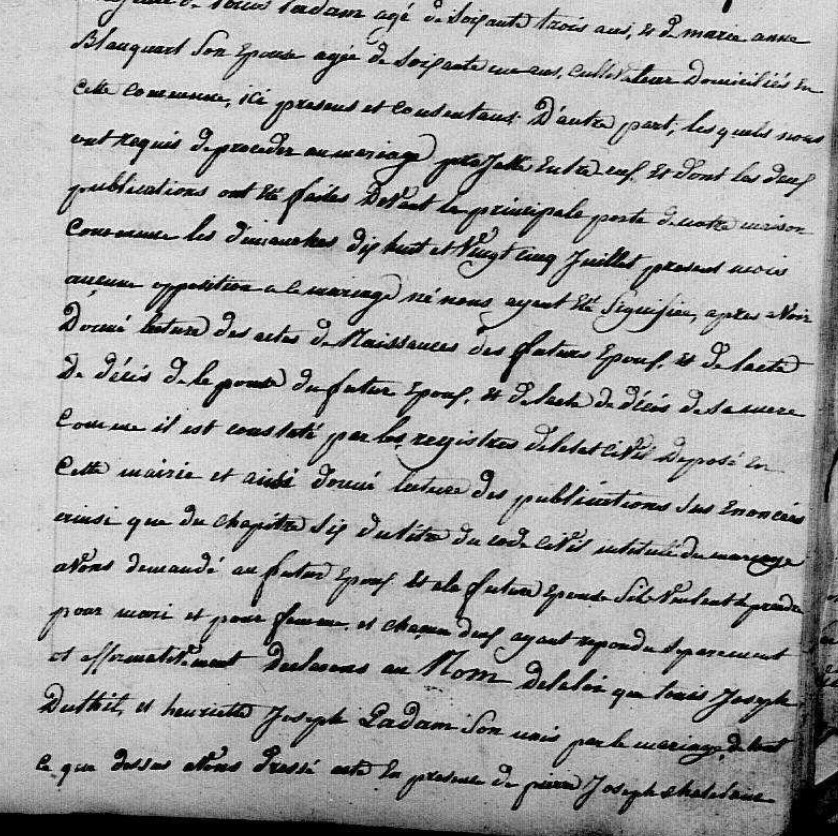 de Louis Ladam agé de Soixante trois ans, et de marie anne
Blauquart Son Epouse agée de Soixante un ans, cultivateur Domiciliés en
cette commune, ici presens et consentans. D'autre part, les quels nous
ont requis de proceder au mariage projetté Entre eux. Et dont les deux
publications ont Eté faites Devant la principale porte de notre maison
Commune les dimanches dix huit et Vingt cinq Juillet present mois
aucune opposition a ce mariage né nous ayant Eté Signifiée, apres avoir
Donné lecture des actes de Naissances des futurs Epoux, Et de lacte
De décés de le pouse du futur Epoux, Et de lacte de décés de sa mere
comme il est constaté par les registres deletat civil Deposé en
Cette mairie et ainsi donné lecture des publications Sus Enoncées
ainsi que du chapitre Six du titre du code civil intitulé du mariage
avons demandé au futur Epoux Et ala future Epouse Sils Veulent se prendre
pour mari et pour femme, et chacun deux ayant repondu Separement
et affirmativement Declarons au Nom delaloi que louis Joseph
Duthil, et henriette Joseph Ladam Son unis par le mariage, de tout
ce que dessus avons Dressé acte En presence de pierre Joseph